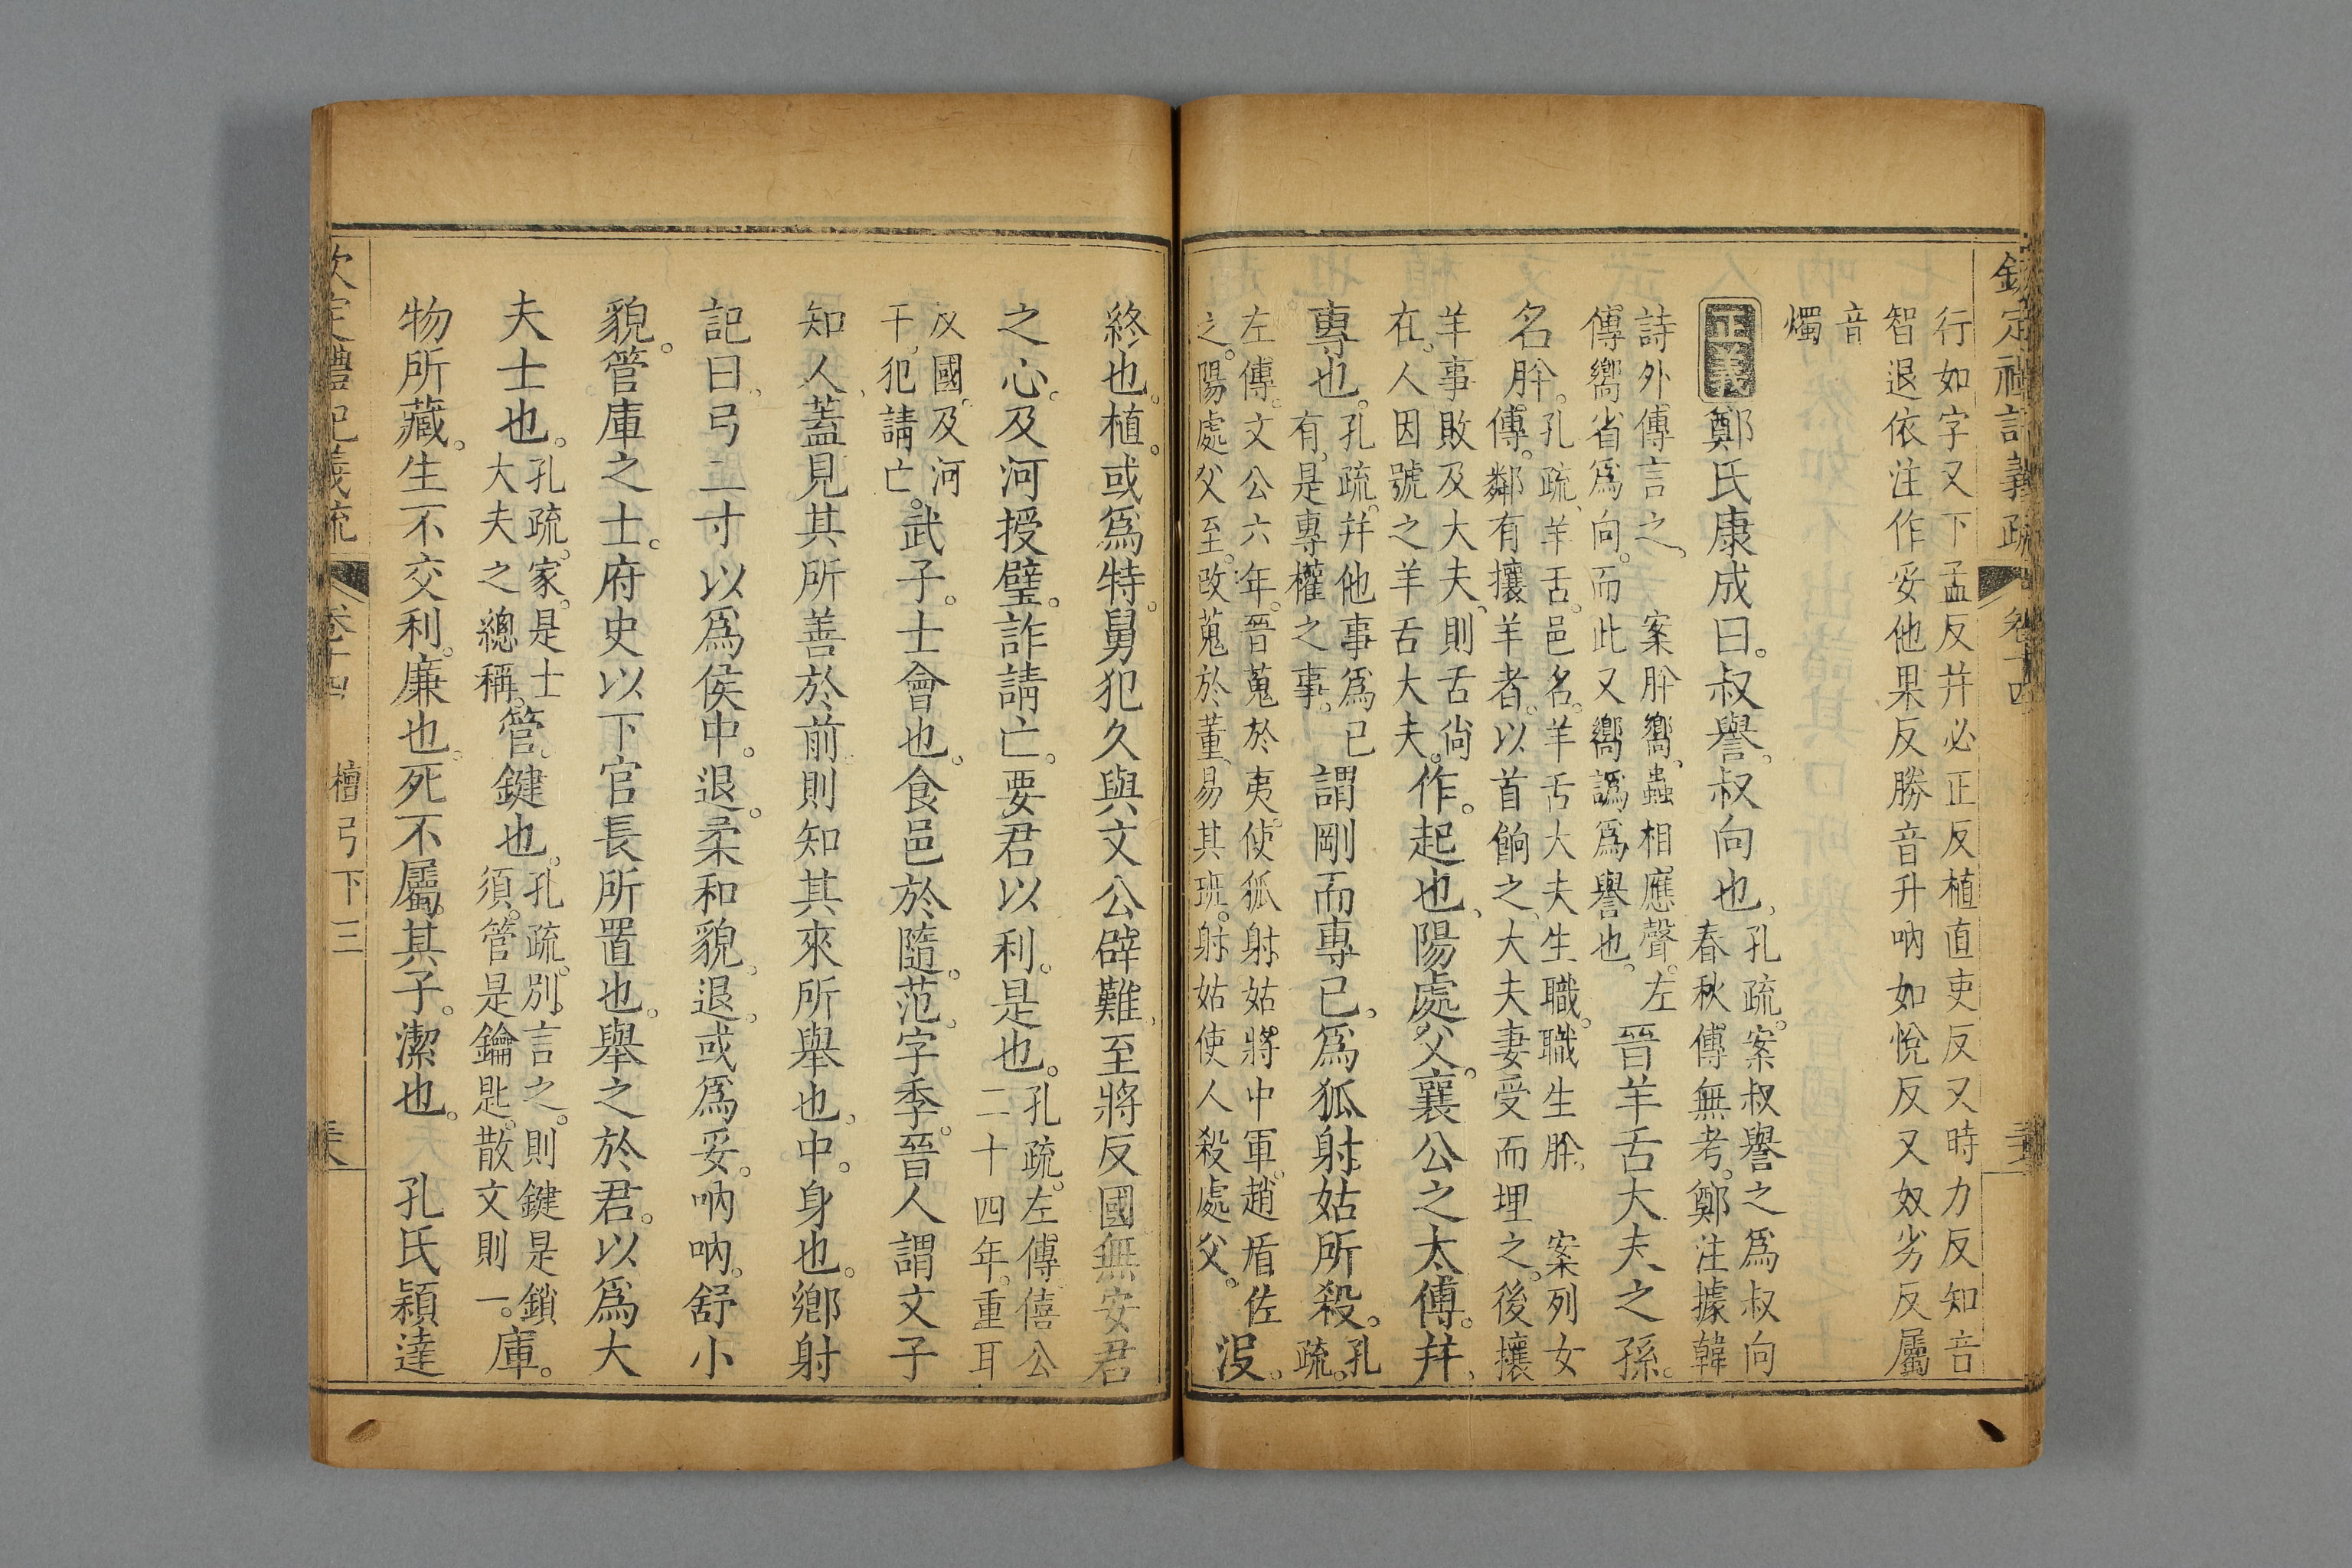 欽定禮記義疏 卷十四
行如字又下孟反幷必正反植直吏反又時力反知音
智退依注作妥他果反勝音升吶如悅反又奴劣反屬
音
燭
正義 鄭氏康成曰叔譽叔向也孔疏案叔譽之爲叔向
春秋傳無考鄭注據韓
詩外傳言之 案肸嚮蟲相應聲左
傳嚮省爲向而此又嚮譌爲譽也晉羊舌大夫之孫
名肸孔疏羊舌邑名羊舌大夫生職職生肸 案列女
傳鄰有攘羊者以首餉之大夫妻受而埋之後攘
羊事敗及大夫則舌尙
在人因號之羊舌大夫作起也陽處父襄公之太傅幷
專也孔疏幷他事爲已
有是專權之事謂剛而專已爲狐射姑所殺孔
疏
左傳文公六年晉蒐於夷使狐射姑將中軍趙盾佐
之陽處父至改蒐於董易其班射姑使人殺處父沒
終也植或爲特舅犯久與文公辟難至將反國無安君
之心及河授璧詐請亡要君以利是也孔疏左傳僖公
二十四年重耳
反國及河
子犯請亡武子士會也食邑於隨范字季晉人謂文子
知人蓋見其所善於前則知其來所舉也中身也鄉射
記曰弓二寸以爲侯中退柔和貌退或爲妥吶吶舒小
貌管庫之士府史以下官長所置也舉之於君以爲大
夫士也孔疏家是士
大夫之總稱管鍵也孔疏別言之則鍵是鎖
須管是鑰匙散文則一庫
物所藏生不交利廉也死不屬其子潔也 孔氏穎達
欽定禮記義疏 卷十四 檀弓下三